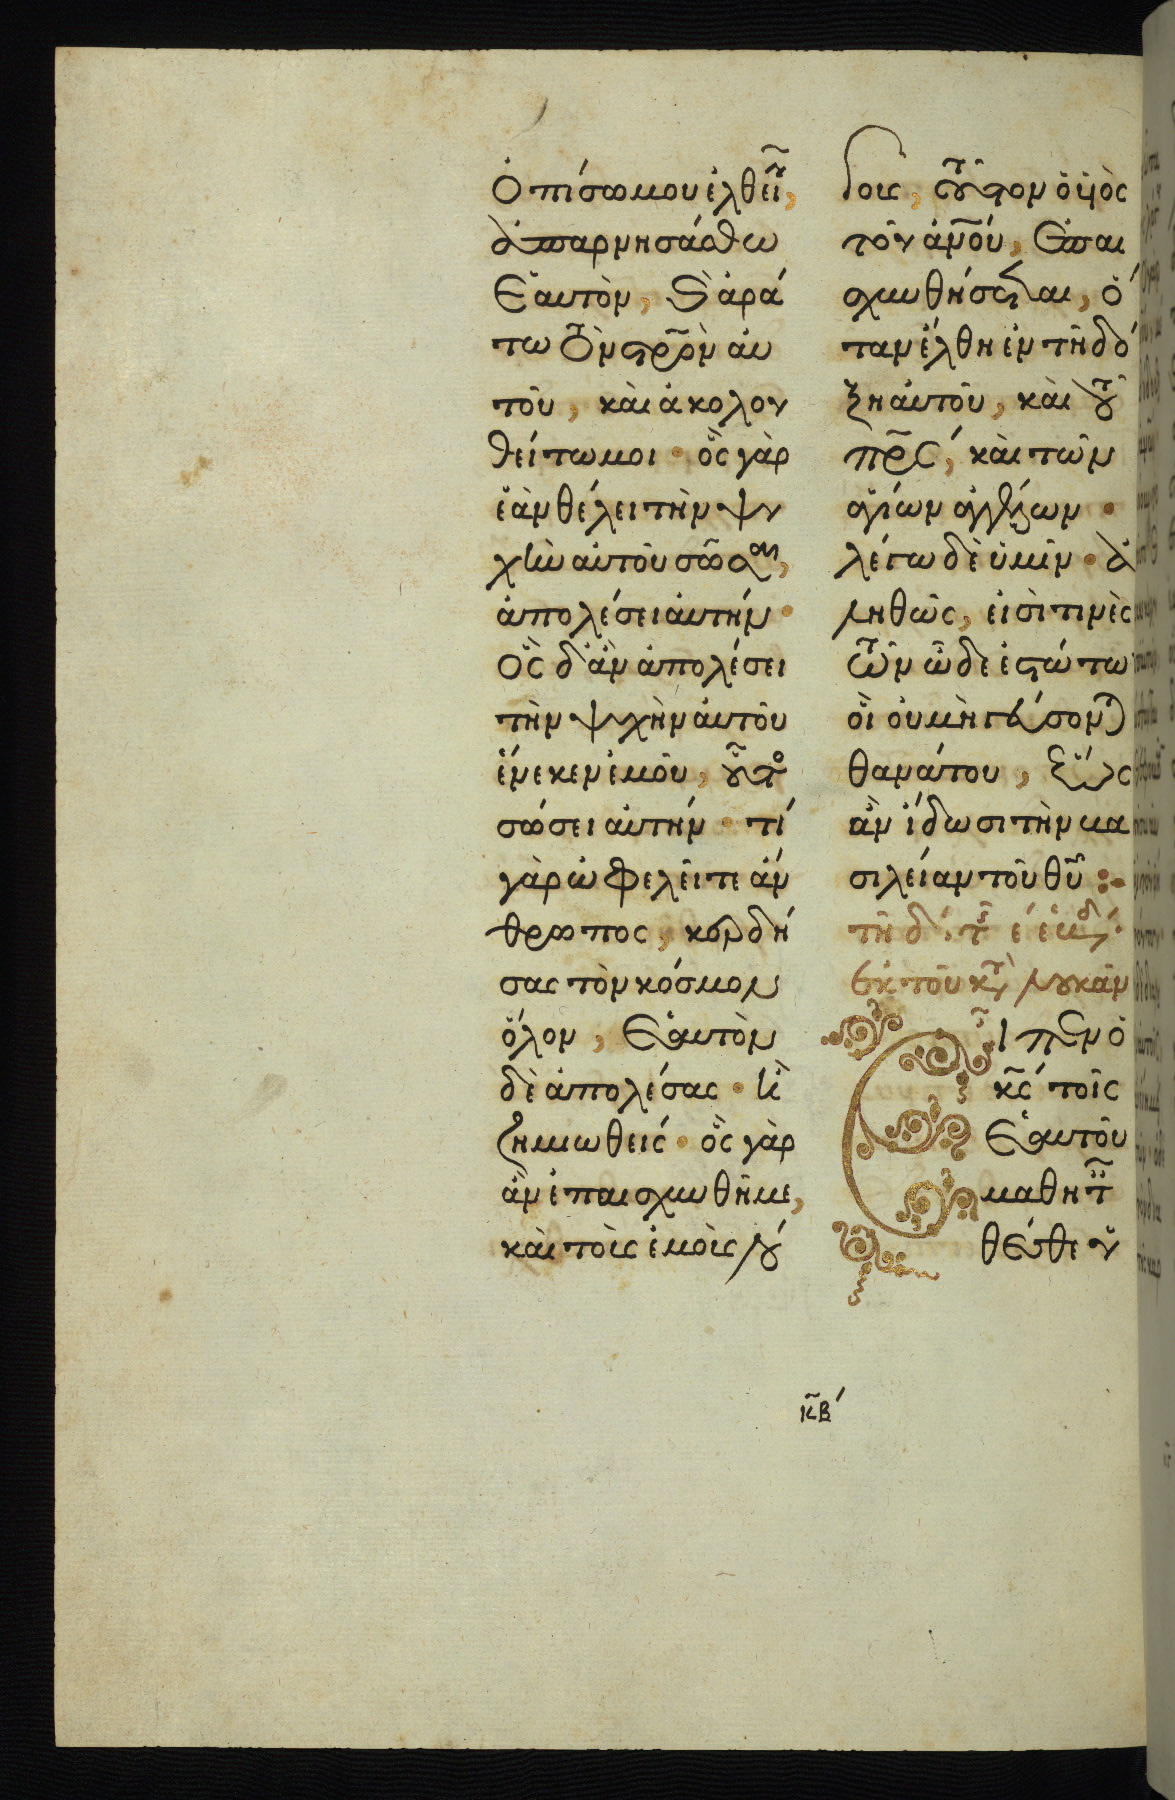 ὀπίσω μου ἐλθεῖν,
ἀπαρνησάσθω
ἑαυτὸν, καὶ ἀρά
τω τὸν στρ̅ὸν αὐ
τοῦ, καὶ ἀκολου
θείτω μοι · ὃς γὰρ
ἐὰν θέλει τὴν ψυ
χὴν αὐτοῦ σῶσαι,
ἀπολέσει αὐτήν ·
ὃς δ' ἂν ἀπολέσει
τὴν ψυχὴν αὐτοῦ
ἕνεκεν ἐμοῦ, οὗτος
σώσει αὐτήν · τί
γὰρ ὠφελεῖτε ἄν
θρωπος, κερδή
σας τὸν κόσμον
ὅλον, ἑαυτὸν
δὲ ἀπολέσας · ἢ
ζημιωθείς · ὃς γὰρ
ἂν ἐπαισχυνθῆ με,
καὶ τοὺς ἐμοὺς λό
γους, τοῦτον ὁ υἱὸς
τοῦ ἀν̅ου, ἐπαι
σχυνθήσεται, ὅ
ταν ἔλθη ἐν τῆ δό
ξη αὐτοῦ, καὶ τοῦ
πρ̅ς, καὶ τῶν
ἁγίων ἀγγέλων ·
λέγω δὲ ὑμῖν · ἀ
ληθῶς, εἰσὶ τινὲς
τῶν ὧδε ἑστώτω
οἳ οὐ μὴ γεύσονται
θανάτου, ἕως
ἂν ἴδωσι τὴν βα
σιλείαν τοῦ θυ̅ :·
τῆ δ΄. τῆς ε΄ ἑβδ.
ἐκ τοῦ κατὰ λουκᾶν
Εἶπεν ὁ
κ̅ς τοῖς
ἑαυτοῦ
μαθητ
θέσθε ὑ
κ̅β